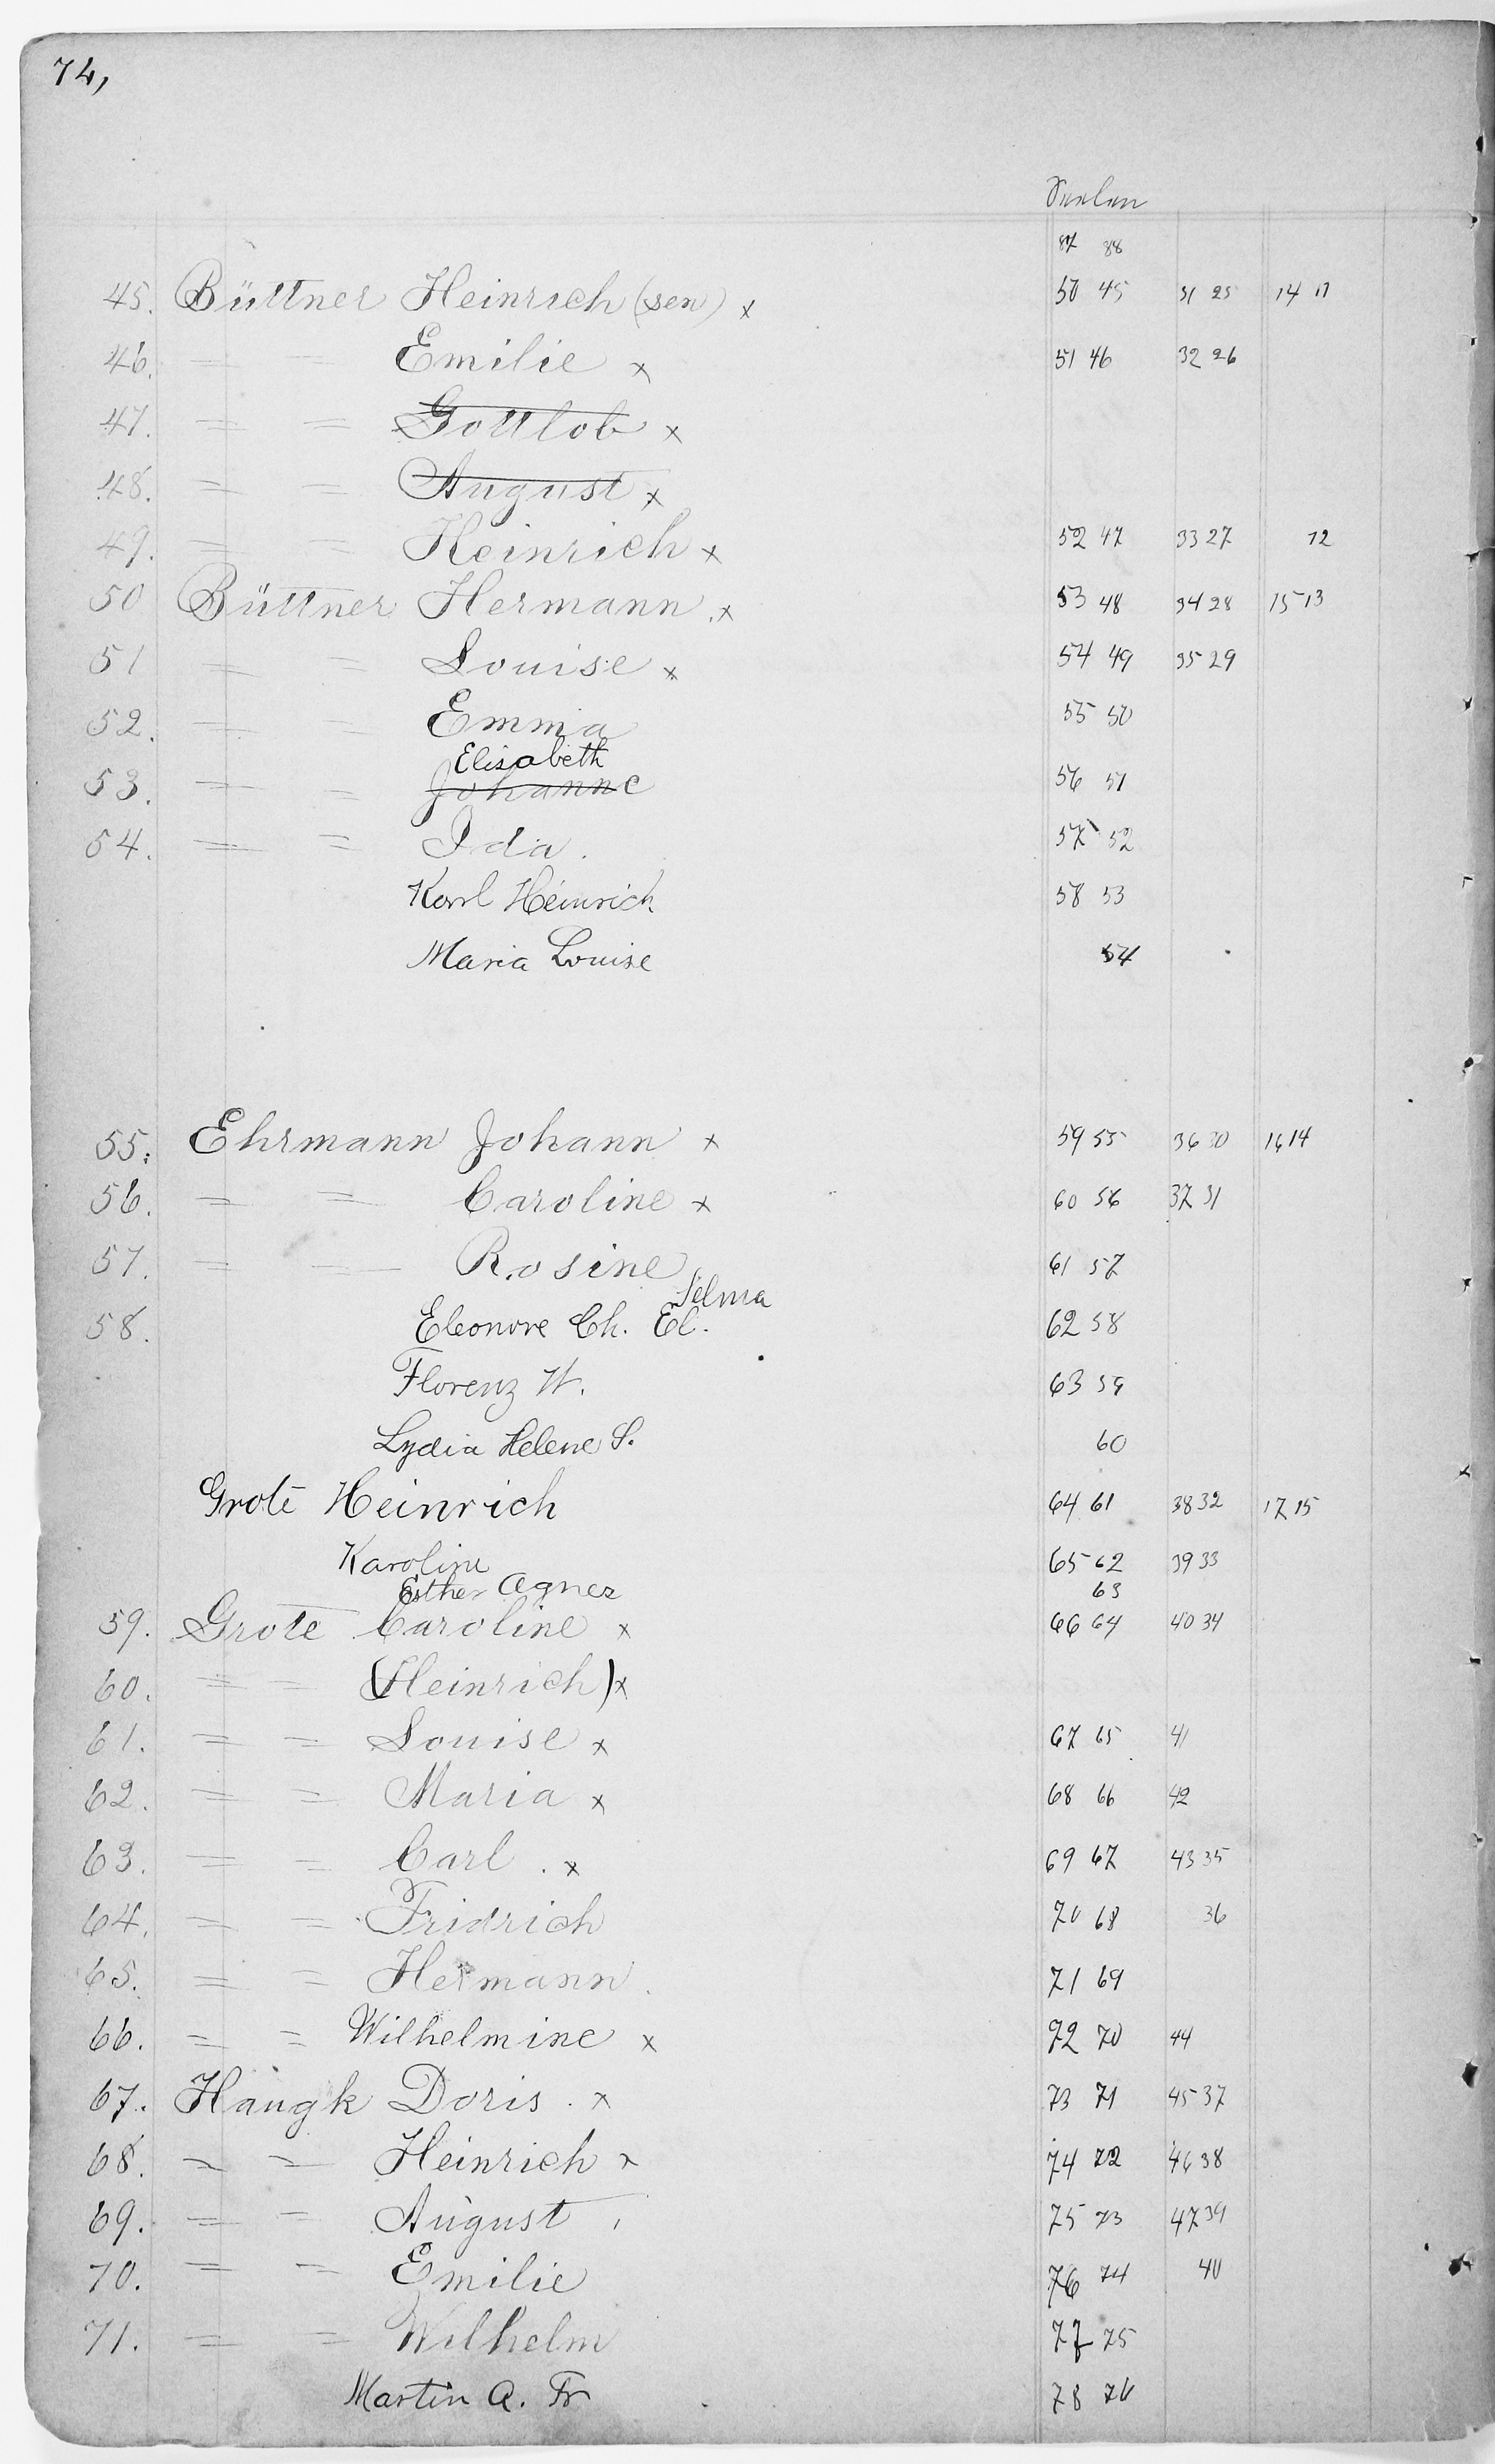 74,
Seelen
87 88
45. Büttner Heinrich (sen) x 50 45 31 25 14 11
46. = = Emilie x 51 46 32 26
47. = = Gottlob x
48. = = August x
49. = = Heinrich x 52 47 33 27 12
50 Büttner Hermann x 53 48 34 28 15 13
51 = = Louise x 54 49 35 29
52. = = Emma 55 50
Elisabeth
53. = = Johanne 56 51
54. = = Ida. 57 52
Karl Heinrich 58 53
Maria Louise 54
55. Ehrmann Johann x 59 55 36 30 16 14
56. = = Caroline x 60 56 37 31
57. = = Rosine 61 57
Selma
58. Eleonore Ch. El. 62 58
Florenz W. 63 59
Lydia Helene S. 60
Grote Heinrich 64 61 38 32 17 15
Karoline 65 62 39 33
Esther Agnes 63
59. Grote Caroline x 66 64 40 34
60. = = (Heinrich) x
61. = = Louise x 67 65 41
62. = = Maria x 68 66 42
63. = = Carl . x 69 67 43 35
64. = = Fridrich 70 68 36
65. = = Hermann. 71 69
66. = = Wilhelmine x 72 70 44
67. Hangk Doris . x 73 71 45 37
68. = = Heinrich x 74 72 46 38
69. = = August 75 73 47 39
70. = = Emilie 76 74 40
71. = = Wilhelm 77 75
Martin A. Fr 78 76